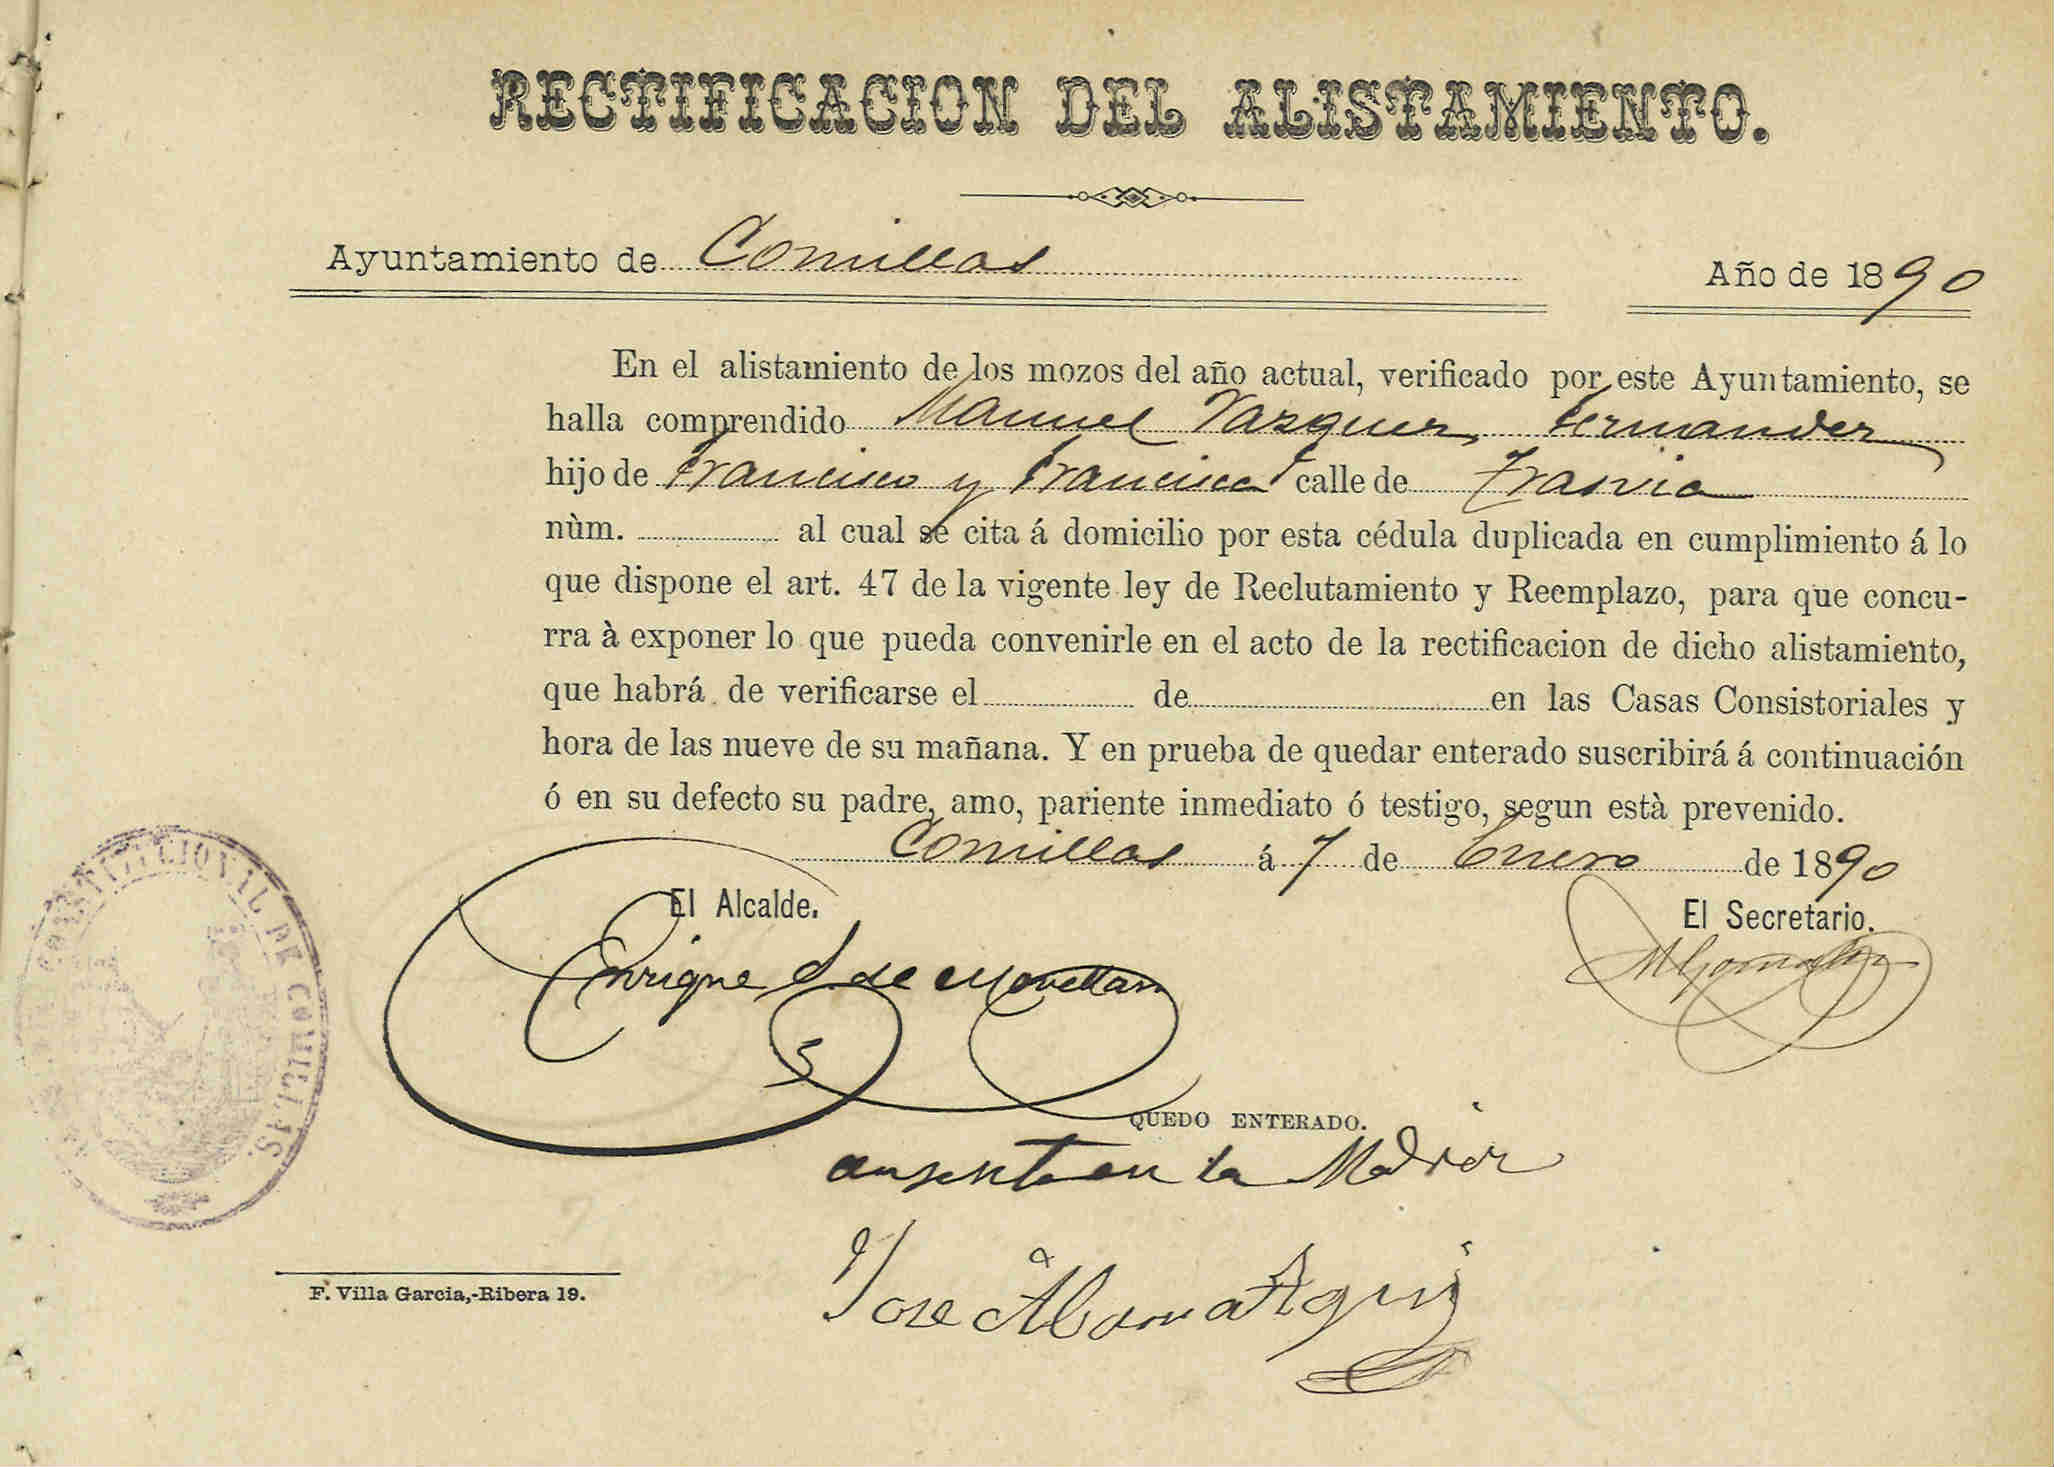 RECTIFICACION DEL ALISTAMIENTO.
Ayuntamiento de Comillas
Año de 1890
En el alistamiento de los mozos del año actual, verificado por este Ayuntamiento, se
halla comprendido Manuel Vazquez Fernandez
hijo de Francisco y Francisca calle de Trasvia
nùm. al cual se cita á domicilio por esta cédula duplicada en cumplimiento á lo
que dispone el art. 47 de la vigente ley de Reclutamiento y Reemplazo, para que concu-
rra à exponer lo que pueda convenirle en el acto de la rectificacion de dicho alistamiento,
que habrá de verificarse el de en las Casas Consistoriales y
hora de las nueve de su mañana. Y en prueba de quedar enterado suscribirá á continuación
ó en su defecto su padre, amo, pariente inmediato ó testigo, segun està prevenido.
Comillas á 7 de Enero de 1890
El Alcalde.
El Secretario.
Enrique S de Movellan
CONSTITUCIONAL DE COMILLAS.
QUEDO ENTERADO.
ausente en la
Jose
F. Villa Garcia,-Ribera 19.